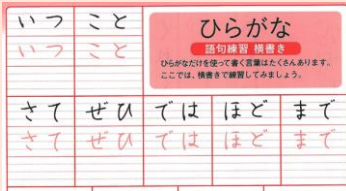 いつ こと
いつ こと
ひらがな
語句練習 横書き
ひらがなだけを使って書く言葉はたくさんあります。
ここでは、横書きで練習してみましょう。
さて ぜひ では ほど まで
さて ぜひ では ほど まで